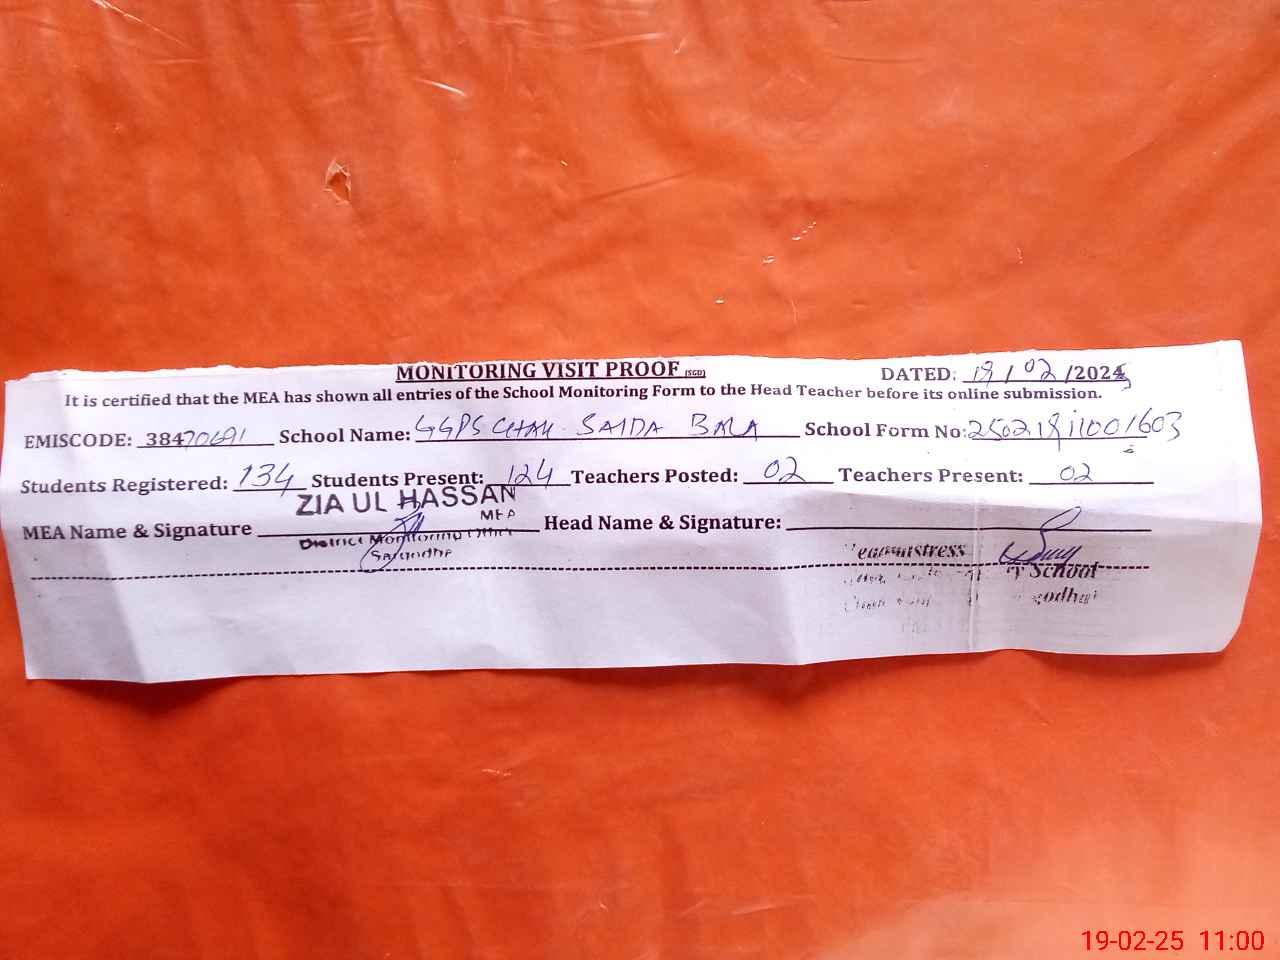 MONITORING VISIT PROOF (SGD) DATED: 19/02/2025
It is certified that the MEA has shown all entries of the School Monitoring Form to the Head Teacher before its online submission.
EMISCODE: 38470691 School Name: GGPS CHAK SAIDA BALA School Form No: 25021911001603
Students Registered: 134 Students Present: 124 Teachers Posted: 02 Teachers Present: 02
ZIA UL HASSAN
MEA
MEA Name & Signature Head Name & Signature:
District Monitoring Office
Sargodha
Headmistress
School
19-02-25 11:00